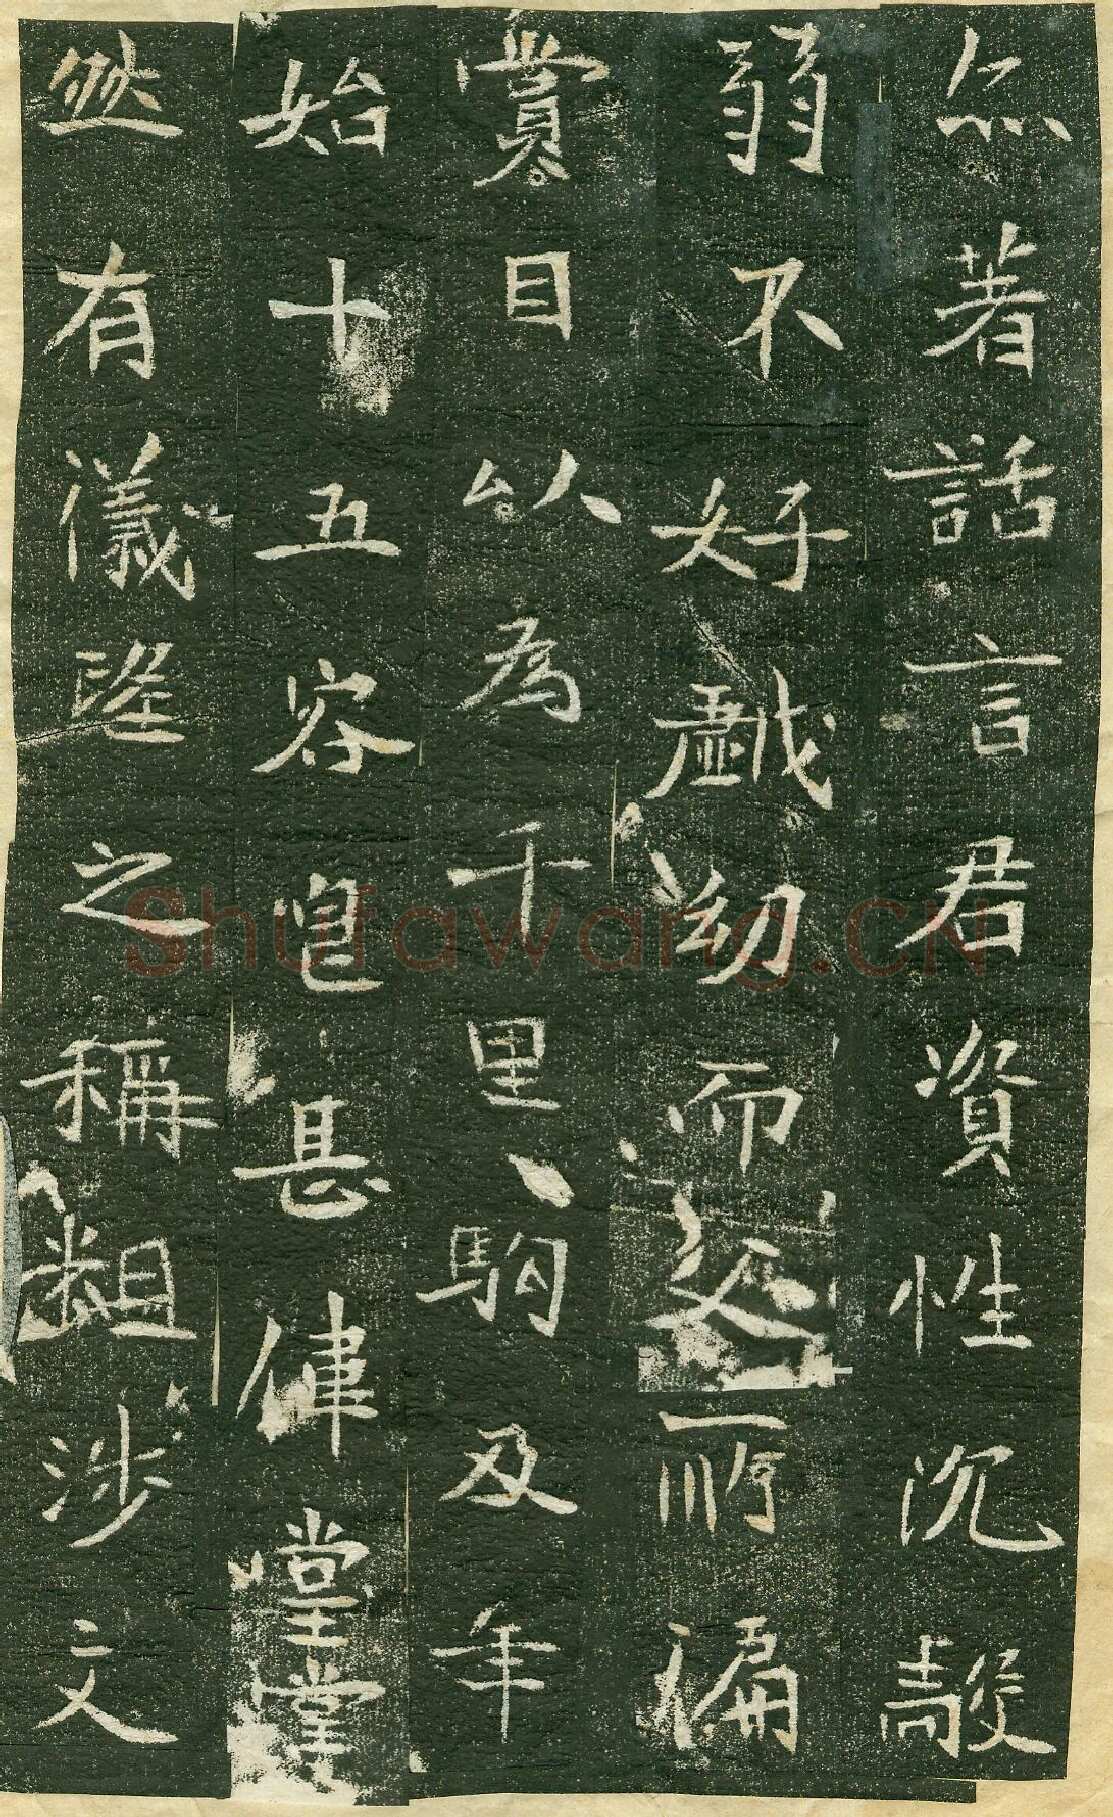 尒著話言君資性沉毅
弱不好戲幼而所偏
賞目以為千里駒及年
始十五容皃甚偉堂堂
然有儀望之稱粗涉文
Shufawang.CN